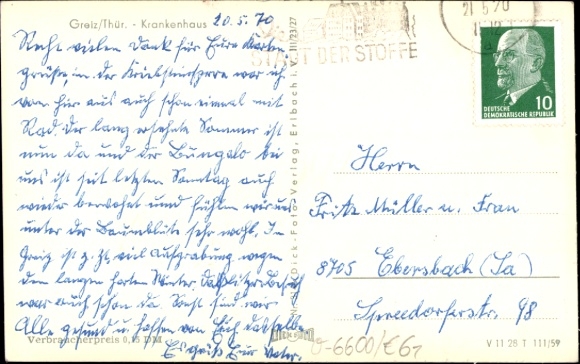 Greiz/Thür. - Krankenhaus
20.5.70
Recht vielen Dank für Eure Karten-
grüße, in der Kriebsteinsperre war ich
von hier aus auch schon einmal mit
Rad. Der lang ersehnte Sommer ist
nun da und der Bungalo bei
uns ist seit letzten Sonntag auch
wieder bewohnt und fühlen wir uns
unter der Baumblüte sehr wohl. In
Greiz ist z. Zt. viel Aufgrabung wegen
den langen harten Winter,
war auch schon da. Sonst sind wir
Alle gesund u. hoffen von Euch dasselbe
Es grüßt Euer Vater.
Verbraucherpreis 0,15 DM
III/23/27
Dick-Foto-Verlag, Erlbach i.
STADT DER STOFFE
21.5.70
10
DEUTSCHE
DEMOKRATISCHE REPUBLIK
Herrn
Fritz Müller u. Frau
8705 Ebersbach (Sa)
Spreedorferstr. 98
V 11 28 T 111/59
O-6600/E67